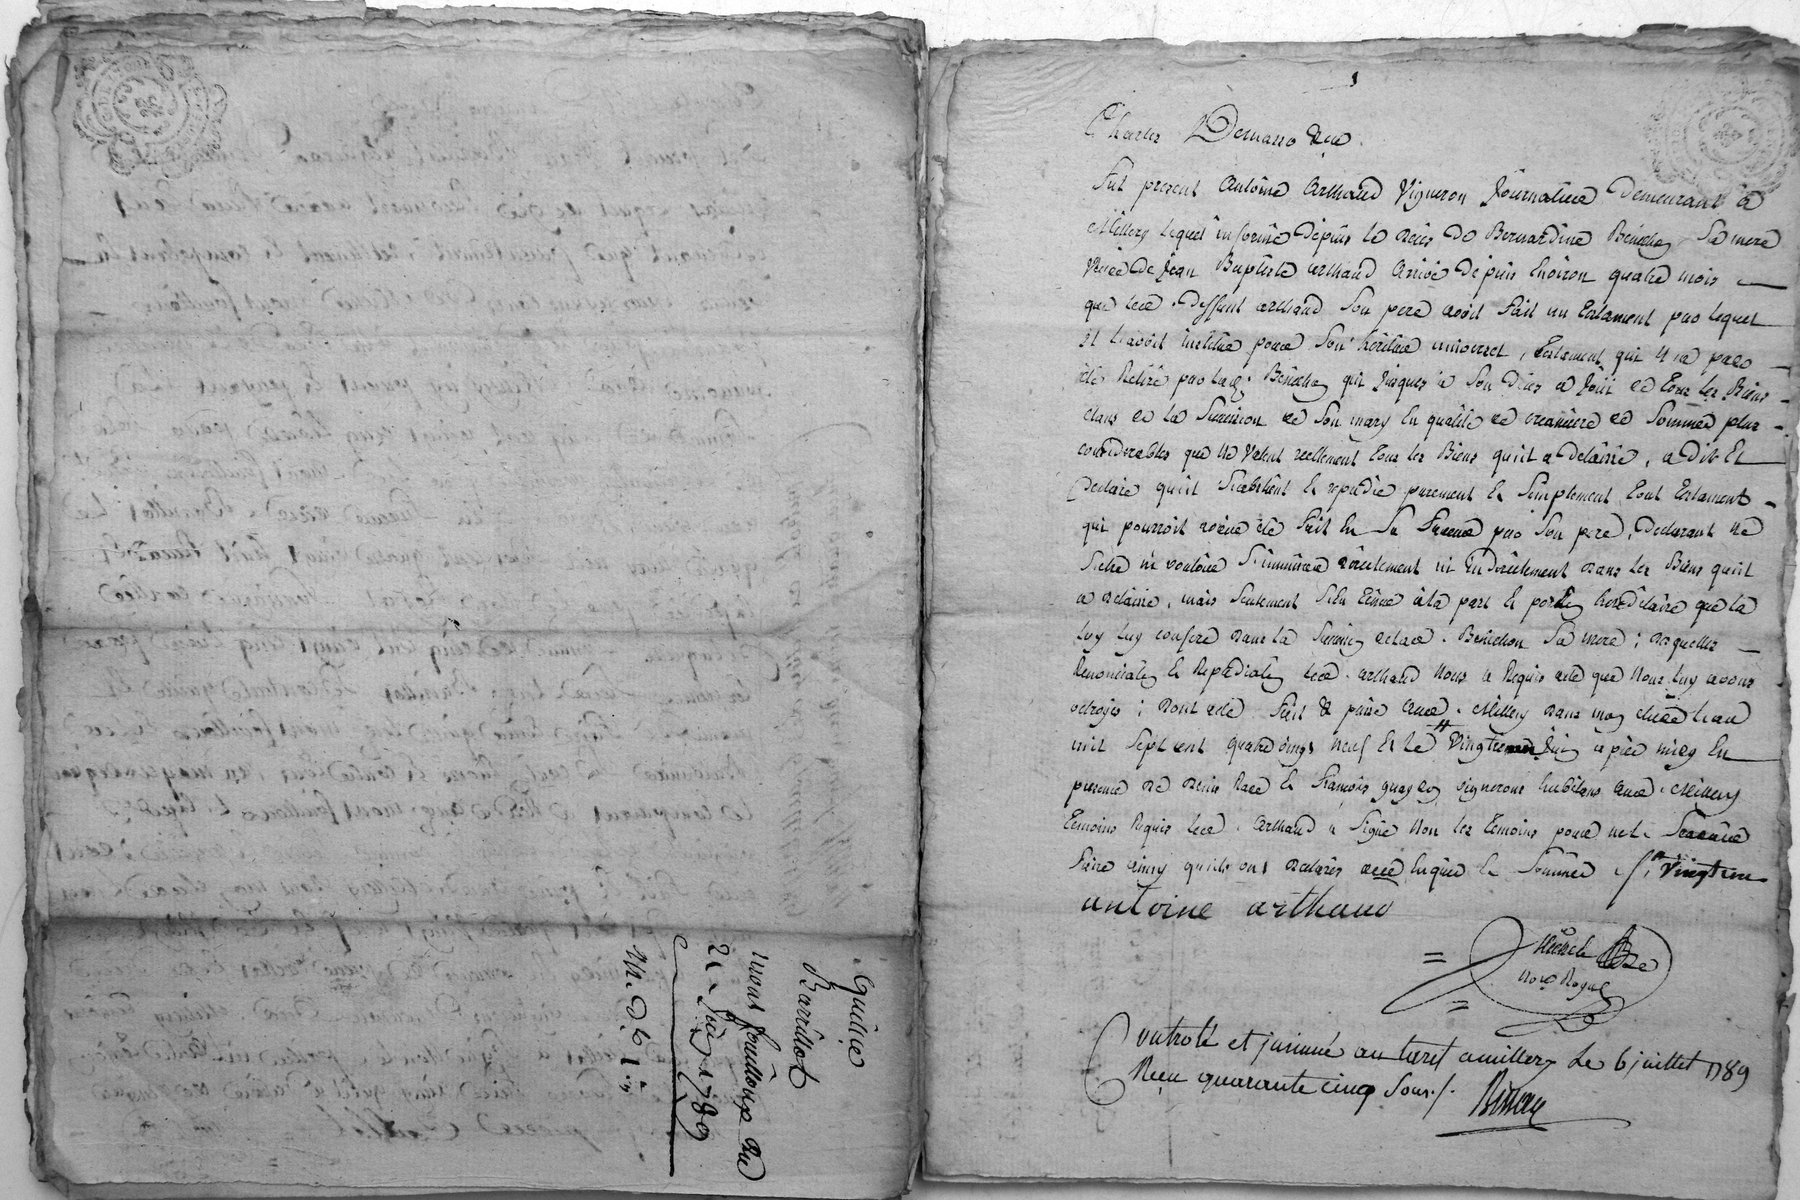 Quittce
Barrillot
mont fouilloux du
21 Juin 1789
Charles
Fut present Antoine Arthaud Vigneron Journalier demeurant à
Millery lequel informé depuis le décès de Bernardine Benechon Sa mere
Veuve de Jean Baptiste arthaud arrivé depuis Environ quatre mois
que led. deffunt arthaud Son pere avoit fait un testament par lequel
il l'avoit institué pour Son héritier universel, testament qui n'a pas
été Retiré par lad. Benechon qui Jusques à Son décès a Joüi de tous les Biens
dans de la Succession de Son mary En qualité de creanciere de Sommes plus
considerables que ne valent reellement tous les Biens qu'il a delaissé, a dit Et
declaré qu'il S'abstient Et repudie purement Et Simplement tout testament
qui pourroit avoir été fait En Sa faveur par Son pere, declarant ne
S'etre ni vouloir S'immiscer directement ni Indirectement dans les Biens qu'il
a delaissé, mais Seulement S'En tenir à la part Et portion hereditaire que la
Loy Luy confere dans la Succession de lad. Benechon Sa mere; desquelles
Renonciation Et Repudiation led. arthaud Nous a Requis acte que Nous Luy avons
octroyé; dont acte fait & passé aud. Millery dans mon Etude L'an
mil Sept cent quatre vingt neuf Et le Juin après midy En
presence de Denis Et François vignerons habitans aud. Millery
temoins Requis led. arthaud a Signé Non les temoins pour ne le Scavoir
faire ainsy qu'ils ont declaré de ce Enquis Et Sommés
antoine arthaud
Nore Royal
Controlé et insinué au tarif a millery Le 6 juillet 1789
Reçu quarante cinq Sous./.